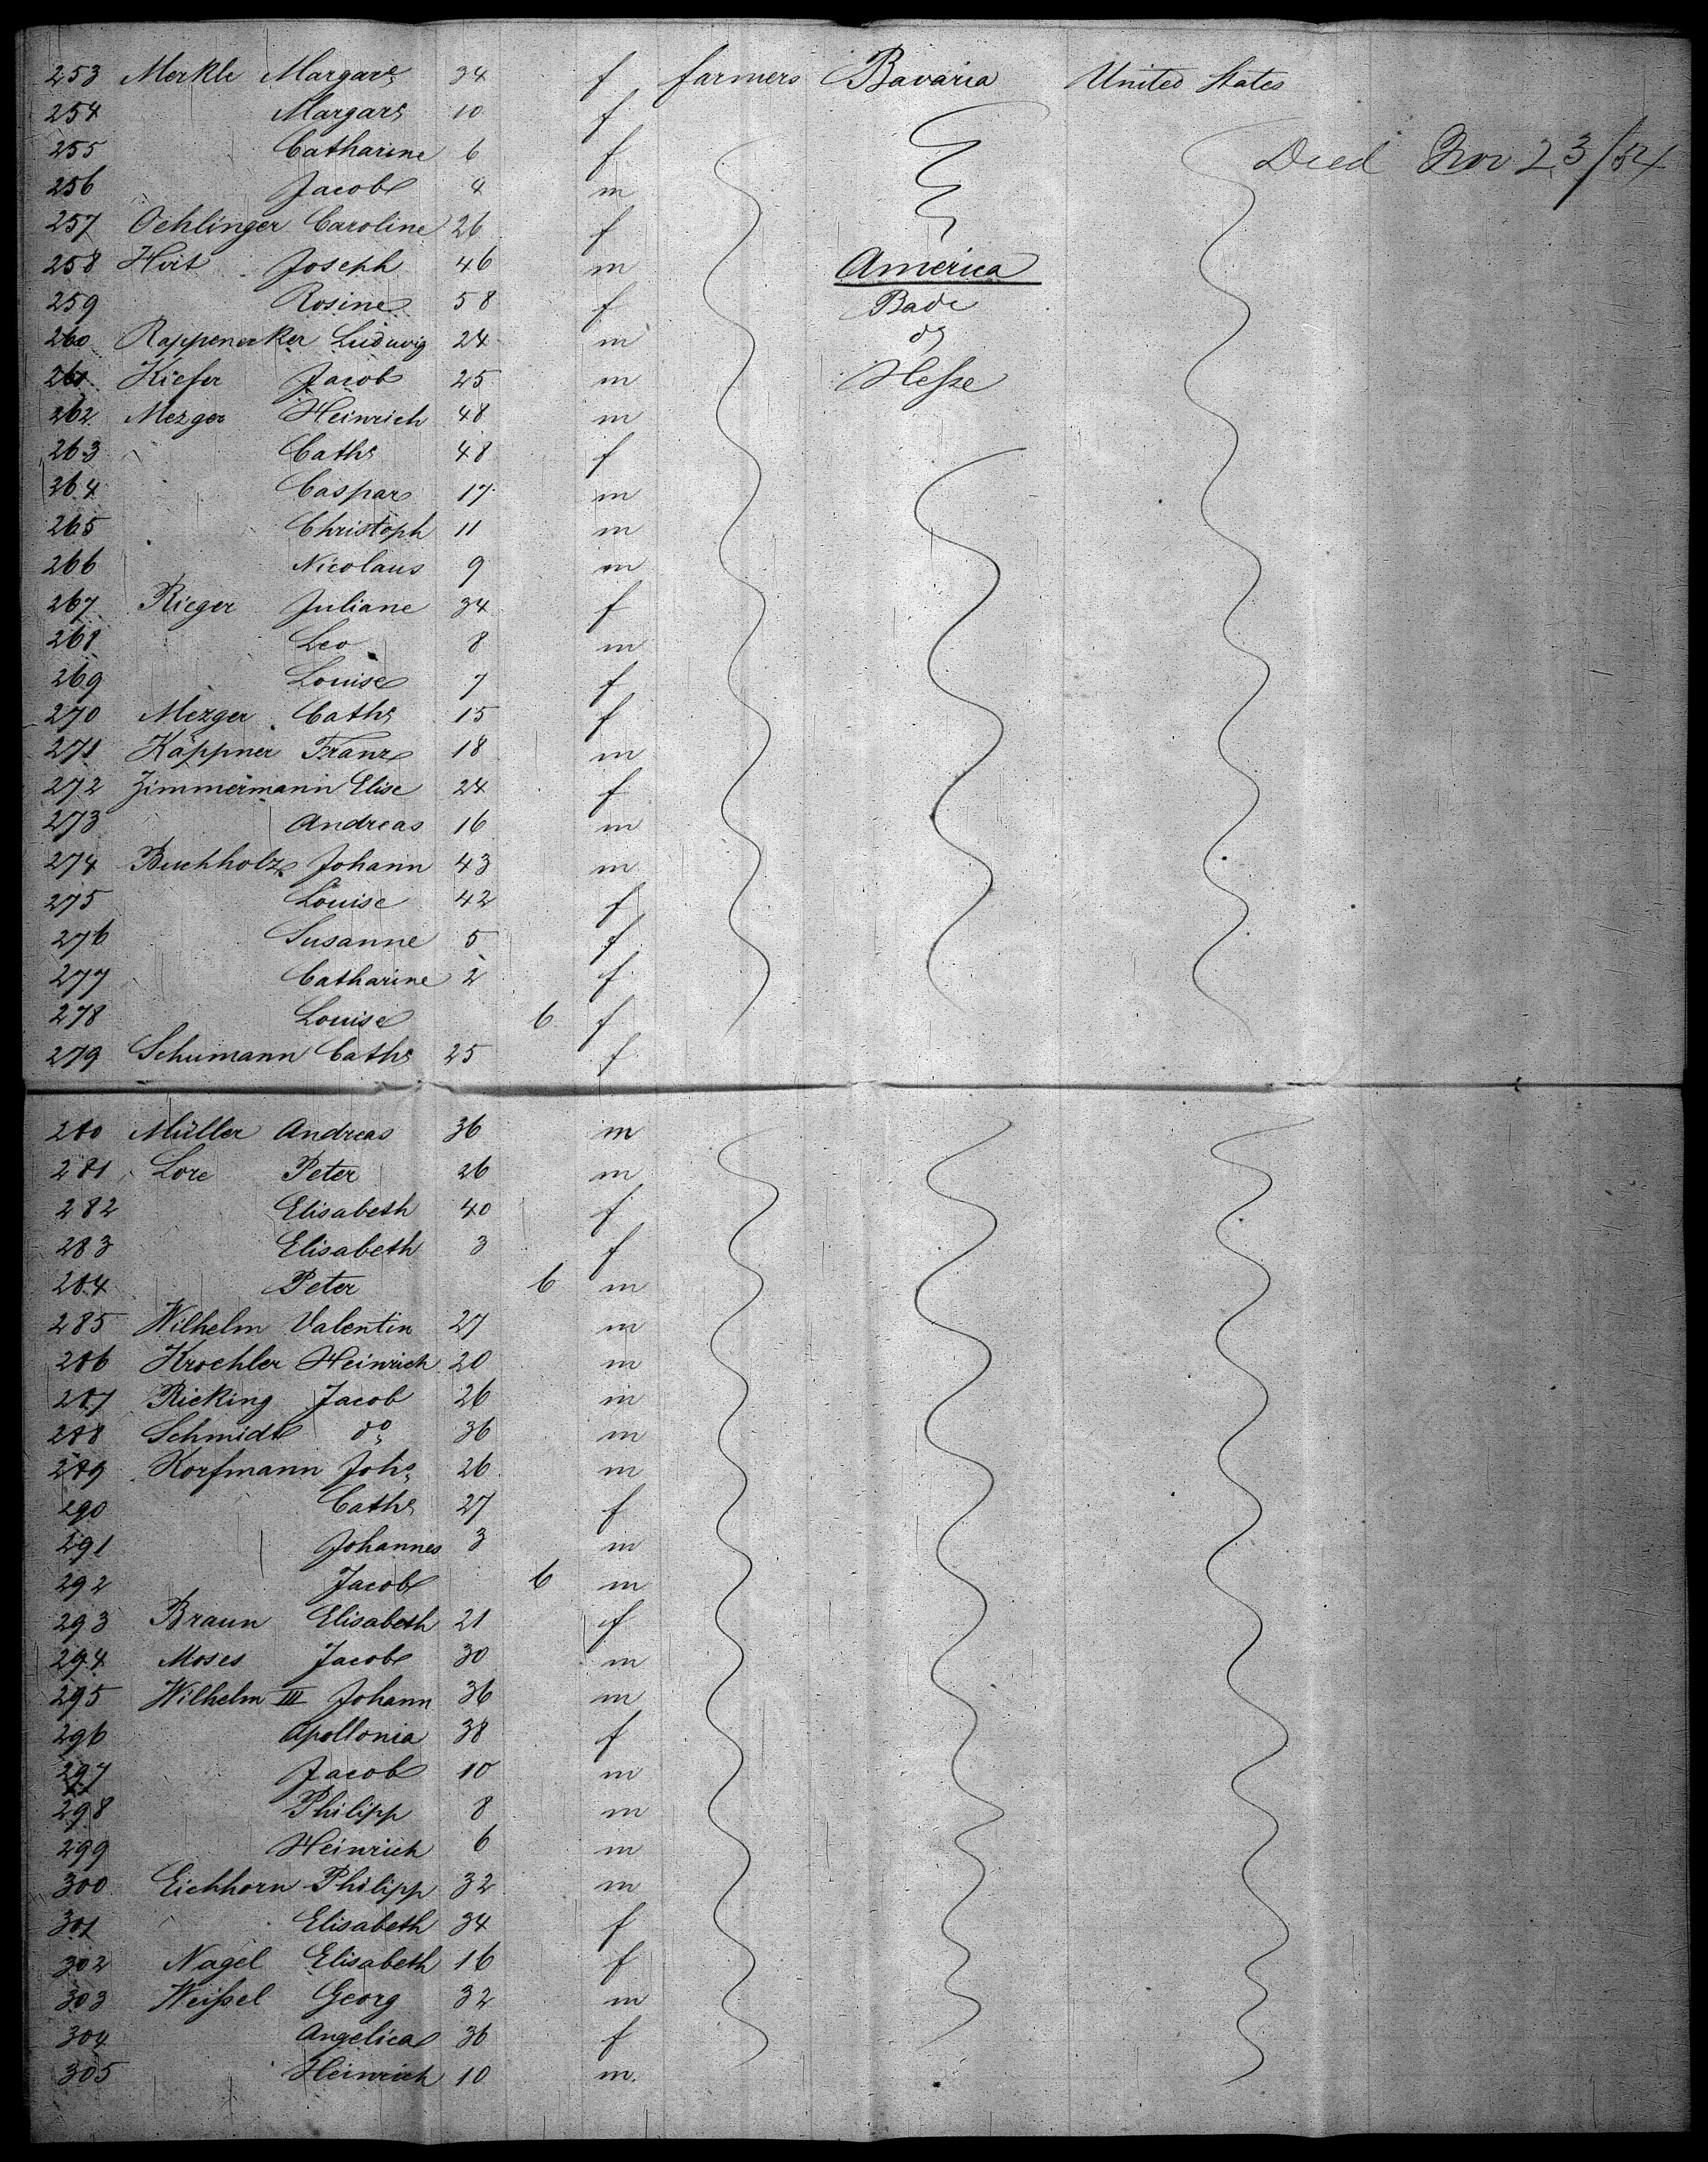 253 Merkle Margare 34 f farmers Bavaria United States
254 Margar 10 f
255 Catharine 6 f Died Nov 23/54
256 Jacob 4 m
257 Oehlinger Caroline 26 f
258 Joseph 46 m America
259 Rosine 58 f Bade
260 Rappenecker Ludwig 24 m do
261 Kiefer Jacob 25 m Heſse
262 Mezger Heinrich 48 m
263 Cath 48 f
264 Caspar 17 m
265 Christoph 11 m
266 Nicolaus 9 m
267 Rieger Juliane 34 f
268 Leo 8 m
269 Louise 7 f
270 Mezger Cath 15 f
271 Käppner Franz 18 m
272 Zimmermann Elise 24 f
273 Andreas 16 m
274 Buchholz Johann 43 m
275 Louise 42 f
276 Susanne 5 f
277 Catharine 2 f
278 Louise 6 f
279 Schumann Cath 25 f
280 Müller Andreas 36 m
281 Lore Peter 26 m
282 Elisabeth 40 f
283 Elisabeth 3 f
284 Peter 6 m
285 Wilhelm Valentin 27 m
286 Kroehler Heinrich 20 m
287 Ricking Jacob 26 m
288 Schmidt do 36 m
289 Korfmann Joh 26 m
290 Cath 27 f
291 Johannes 3 m
292 Jacob 6 m
293 Braun Elisabeth 21 f
294 Moses Jacob 30 m
295 Wilhelm III Johann 36 m
296 Apollonia 38 f
297 Jacob 10 m
298 Philipp 8 m
299 Heinrich 6 m
300 Eichhorn Philipp 32 m
301 Elisabeth 34 f
302 Nagel Elisabeth 16 f
303 Weiſsel Georg 32 m
304 Angelica 36 f
305 Heinrich 10 m